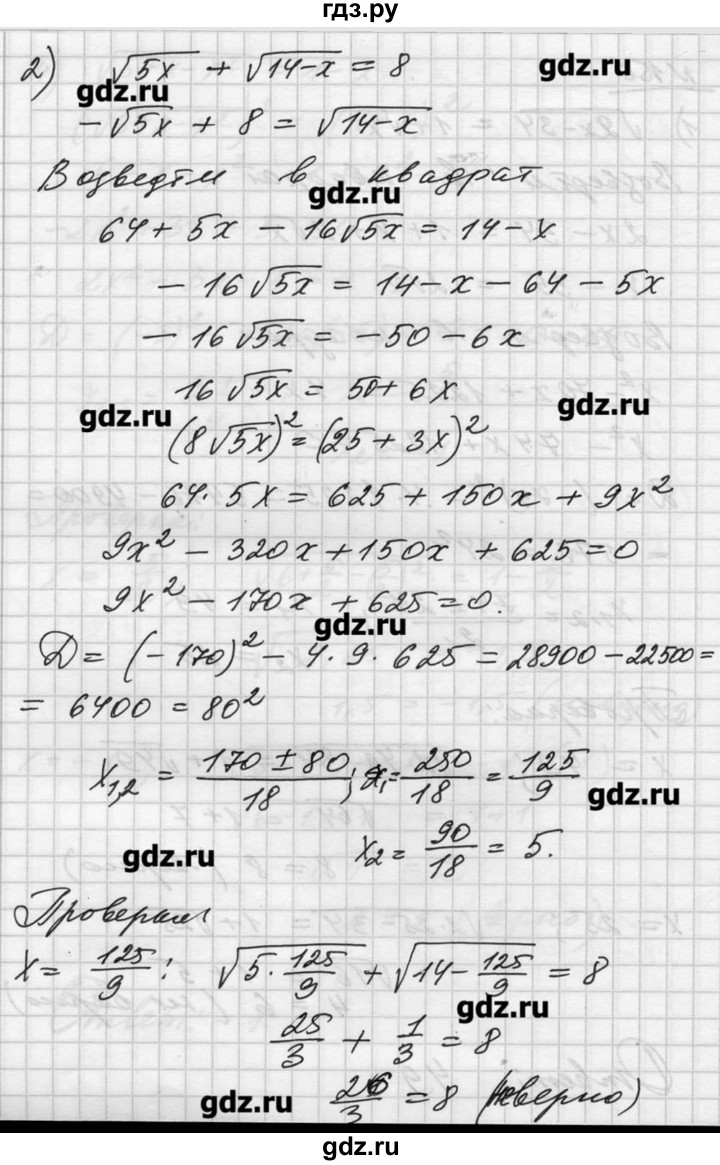 гдз.ру
2) √5x + √14-x = 8
gdz.ru
gdz.ru
-√5x + 8 = √14-x
Возведём в квадрат
gdz.ru
64 + 5x - 16√5x = 14 - x
- 16√5x = 14 - x - 64 - 5x
- 16√5x = -50 - 6x
16√5x = 50 + 6x
gdz.ru
gdz.ru
(8√5x)² = (25 + 3x)²
64·5x = 625 + 150x + 9x²
9x² - 320x + 150x + 625 = 0
9x² - 170x + 625 = 0.
gdz.ru
D = (-170)² - 4·9·625 = 28900 - 22500 =
= 6400 = 80²
x1,2 = 170 ± 80/18; x1 = 250/18 = 125/9
gdz.ru
x2 = 90/18 = 5.
gdz.ru
Проверим
x = 125/9: √5·125/9 + √14-125/9 = 8
gdz.ru
25/3 + 1/3 = 8
gdz.ru
26/3 = 8 (неверно)
gdz.ru